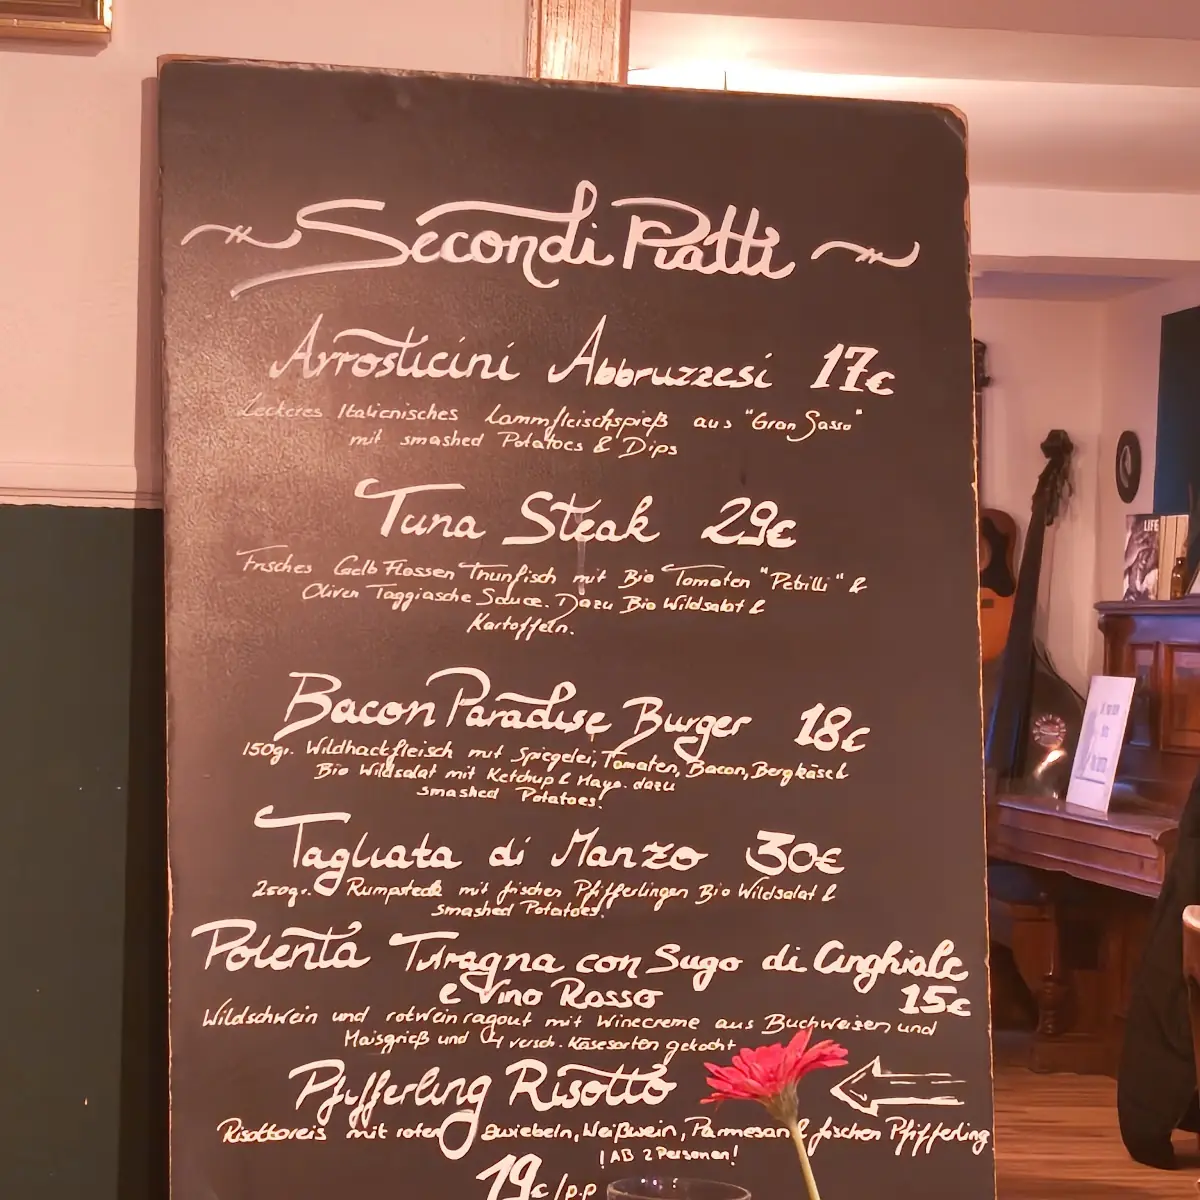 Secondi Piatti
Arrosticini Abbruzzesi 17€
Leckeres Italienisches Lammfleischspieß aus "Gran Sasso"
mit smashed Potatoes & Dips
Tuna Steak 29€
Frisches Gelb Flossen Thunfisch mit Bio Tomaten "Petrilli" &
Oliven Taggiasche Sauce. Dazu Bio Wildsalat &
Kartoffeln.
Bacon Paradise Burger 18€
150gr. Wildhackfleisch mit Spiegelei, Tomaten, Bacon, Bergkäse &
Bio Wildsalat mit Ketchup & Mayo. dazu
smashed Potatoes!
Tagliata di Manzo 30€
250gr. Rumpsteak mit frischen Pfifferlingen Bio Wildsalat &
smashed Potatoes!
Polenta Taragna con Sugo di Cinghiale
e Vino Rosso 15€
Wildschwein und rotwein ragout mit Winecreme aus Buchweisen und
Maisgrieß und 4 versch. Käsesorten gekocht
Pfifferling Risotto
Risottoreis mit roten Zwiebeln, Weißwein, Parmesan & fischen Pfifferling
! AB 2 Personen!
19€/p.p
LIFE